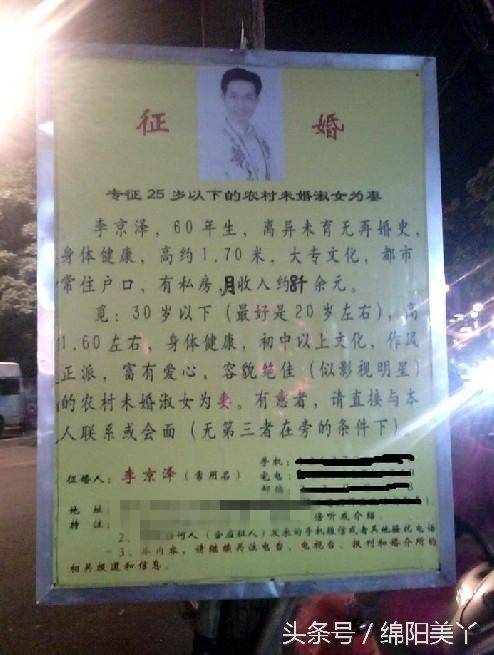 征 婚
专征25岁以下的农村未婚淑女为妻
李京泽，60年生，离异未育无再婚史，
身体健康，高约1.70米，大专文化，都市
常住户口，有私房，月收入约8千余元。
觅：30岁以下（最好是20岁左右），高
1.60左右，身体健康，初中以上文化，作风
正派，富有爱心，容貌绝佳（似影视明星）
的农村未婚淑女为妻。有意者，请直接与本
人联系或会面（无第三者在旁的条件下）。
手机：
征婚人：李京泽（常用名）
电
邮
地 址
特 注： 传听或介绍。
2、 何人 发来的手机短信或者其他骚扰电话
3、 内容，请继续关注电台、电视台、报刊和婚介所的
相关报道和信息。
头条号／绵阳美丫